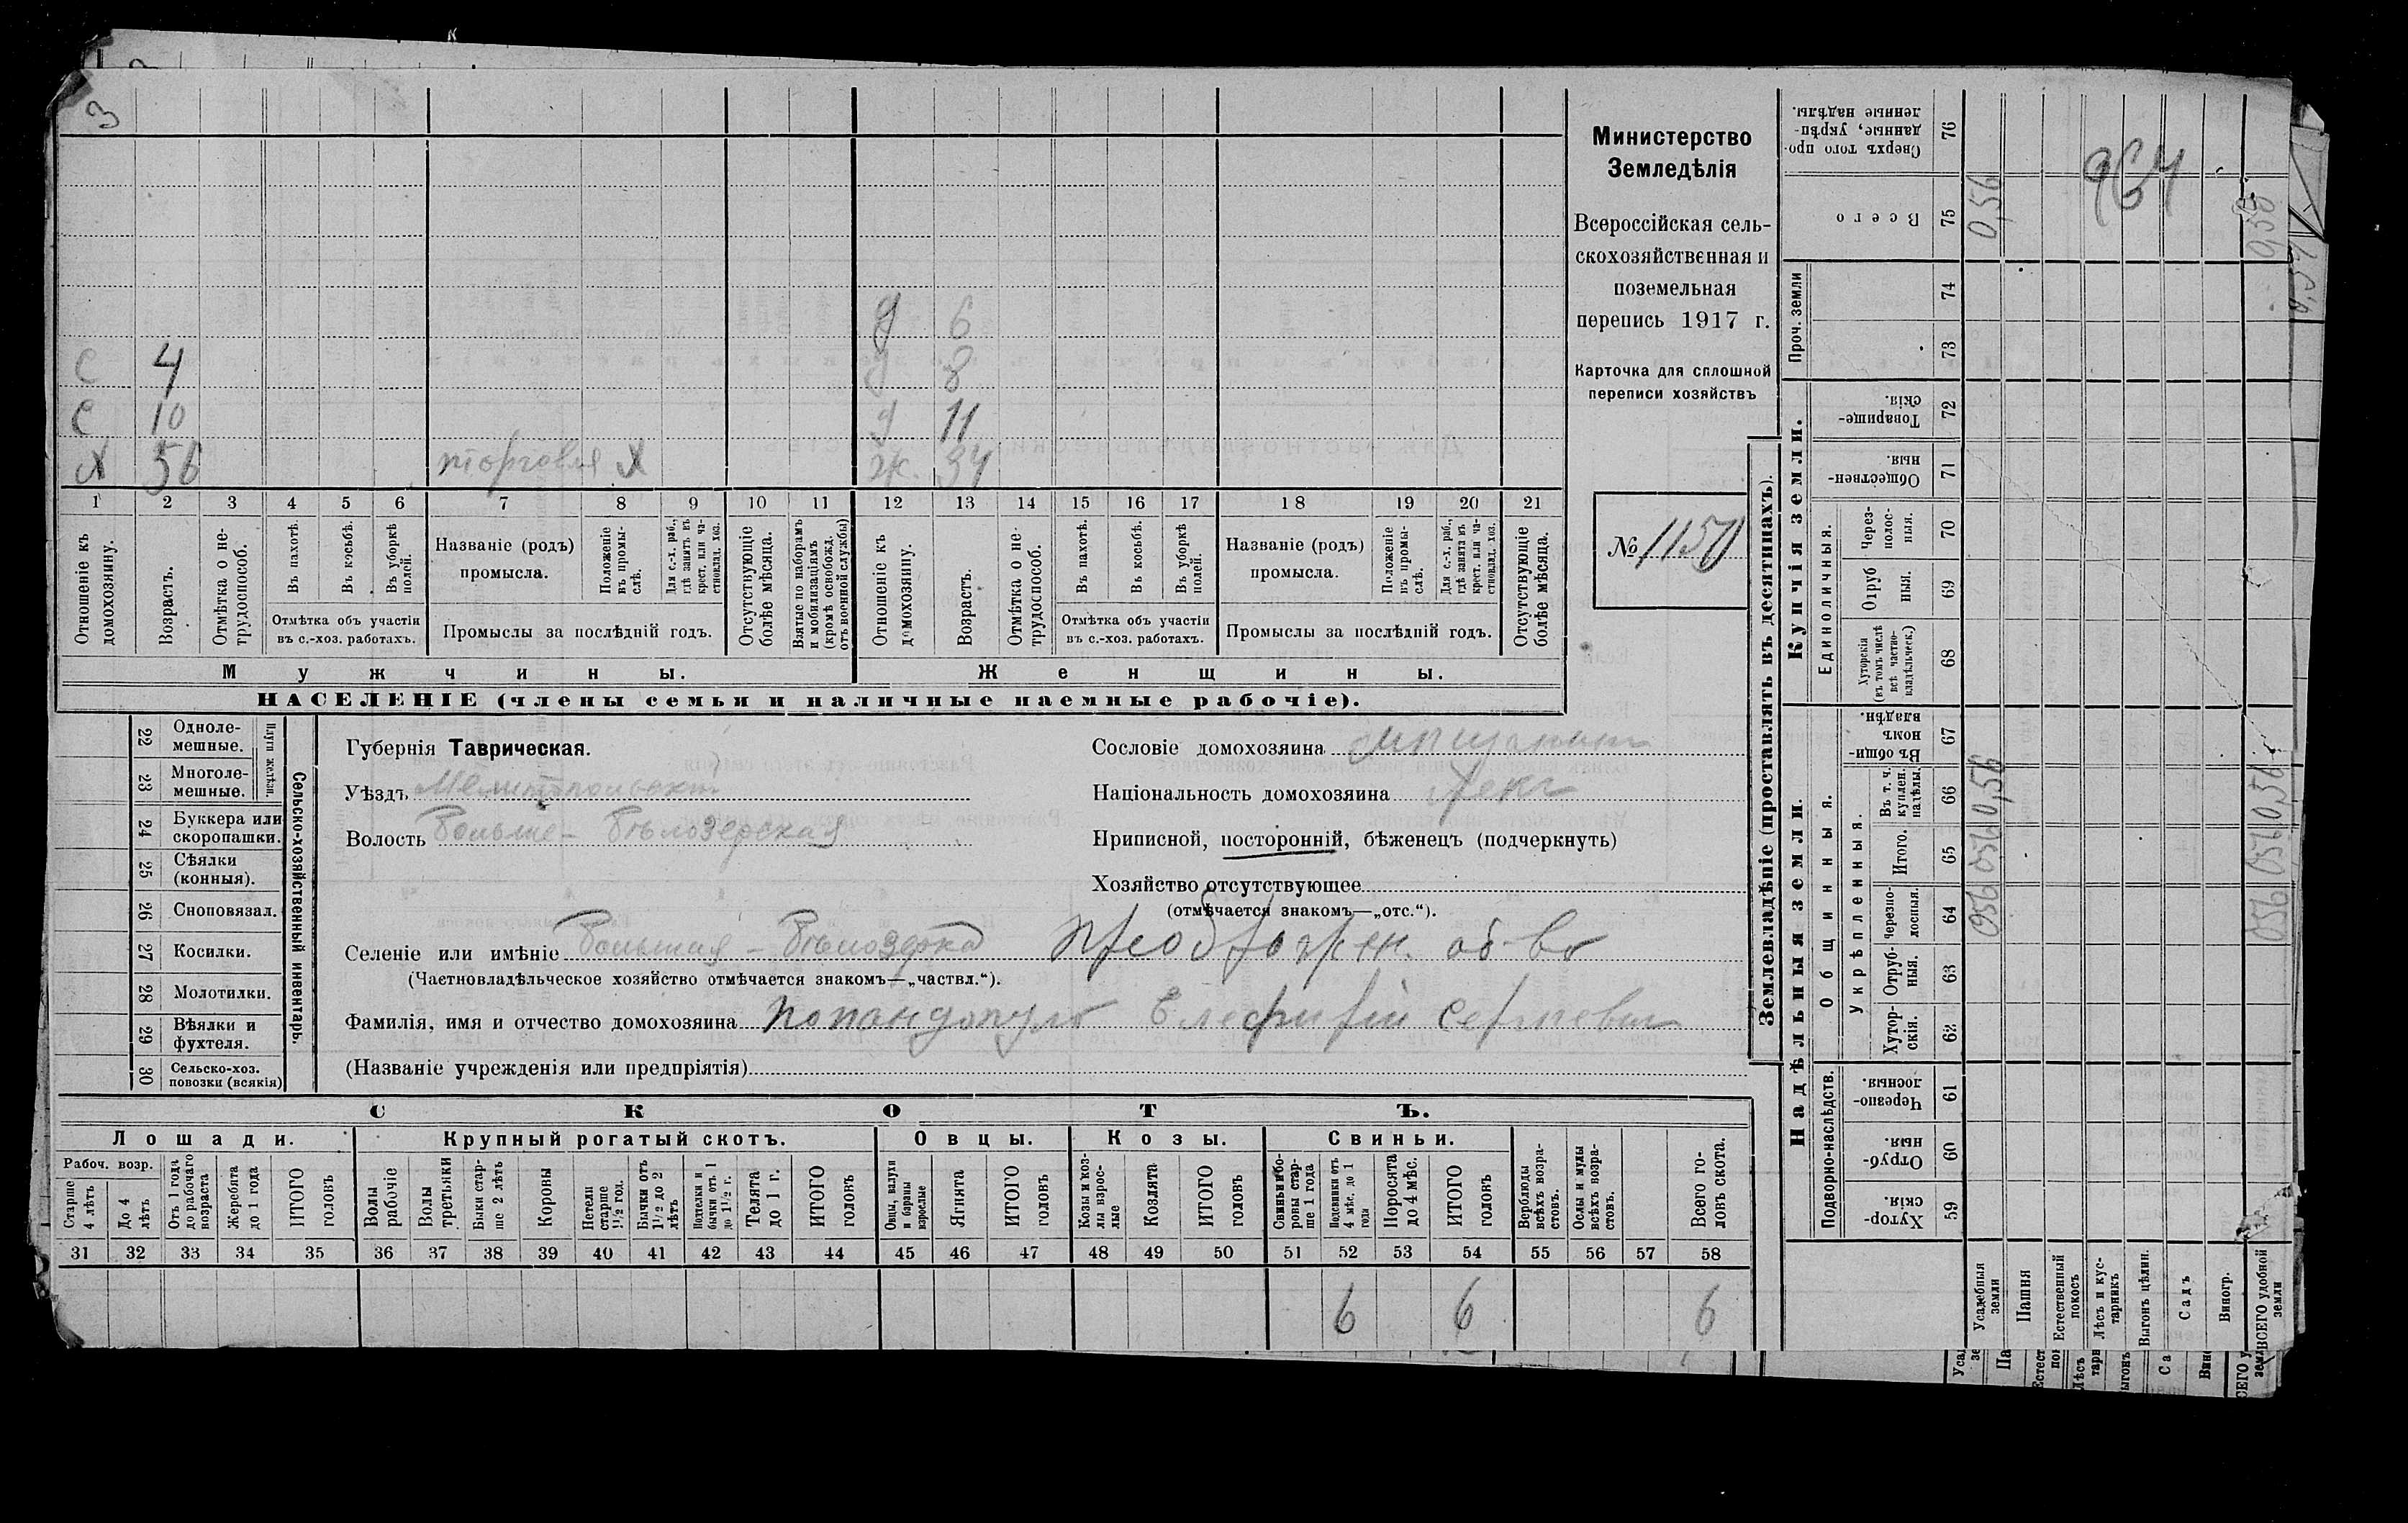 3
С 4
С 10
Х 56 торговля Х
д 6
д 8
д 11
ж. 34
1 2 3 4 5 6 7 8 9 10 11 12 13 14 15 16 17 18 19 20 21
Отношеніе къ домохозяину.
Возрастъ.
Отмѣтка о нетрудоспособ.
Въ пахотѣ.
Въ косьбѣ.
Въ уборкѣ полей.
Отмѣтка объ участіи
въ с.-хоз. работахъ.
Названіе (родъ)
промысла.
Положеніе въ промыслѣ.
Для с.-х. раб., гдѣ занятъ въ крест. или частновлад. хоз.
Промыслы за послѣдній годъ.
Отсутствующіе болѣе мѣсяца.
Взятые по наборамъ и мобилизаціямъ (кромѣ освобожд. отъ военной службы)
Отношеніе къ домохозяину.
Возрастъ.
Отмѣтка о нетрудоспособ.
Въ пахотѣ.
Въ косьбѣ.
Въ уборкѣ полей.
Отмѣтка объ участіи
въ с.-хоз. работахъ.
Названіе (родъ)
промысла.
Положеніе въ промыслѣ.
Для с.-х. раб., гдѣ занята въ крест. или частновлад. хоз.
Промыслы за послѣдній годъ.
Отсутствующіе болѣе мѣсяца.
Мужчины.
Женщины.
НАСЕЛЕНІЕ (члены семьи и наличные наемные рабочіе).
Министерство
Земледѣлія
Всероссійская сель-
скохозяйственная и
поземельная
перепись 1917 г.
Карточка для сплошной
переписи хозяйствъ
№ 1150
22 Одноле-
мешные.
23 Многоле-
мешные.
Плуги желѣзн.
24 Буккера или
скоропашки.
25 Сѣялки
(конныя).
26 Сноповязал.
27 Косилки.
28 Молотилки.
29 Вѣялки и
фухтеля.
30 Сельско-хоз.
повозки (всякія)
Сельско-хозяйственный инвентарь.
Губернія Таврическая.
Уѣздъ Мелитопольскій
Волость Больше-Бѣлозерская
Сословіе домохозяина мѣщанин
Національность домохозяина грекъ
Приписной, посторонній, бѣженецъ (подчеркнуть)
Хозяйство отсутствующее
(отмѣчается знакомъ—„отс.“).
Селеніе или имѣніе Большая-Бѣлозерка Преображен. об-во
(Частновладѣльческое хозяйство отмѣчается знакомъ—„частвл.“).
Фамилія, имя и отчество домохозяина Попандопуло Елефтерій Сергѣевич
(Названіе учрежденія или предпріятія)
СКОТЪ.
Лошади. Крупный рогатый скотъ. Овцы. Козы. Свиньи.
Рабоч. возр.
Старше 4 лѣтъ
До 4 лѣтъ
Отъ 1 года до рабочаго возраста
Жеребята до 1 года
ИТОГО головъ
Волы рабочіе
Волы третьяки
Быки старше 2 лѣтъ
Коровы
Нетели старше 1½ год.
Бычки отъ 1½ до 2 лѣтъ
Подтелки и бычки отъ 1 до 1½ г.
Телята до 1 г.
ИТОГО головъ
Овцы, валухи и бараны взрослые
Ягнята
ИТОГО головъ
Козы и козлы взрослые
Козлята
ИТОГО головъ
Свиньи и боровы старше 1 года
Подсвинки отъ 4 мѣс. до 1 года
Поросята до 4 мѣс.
ИТОГО головъ
Верблюды всѣхъ возрастовъ.
Ослы и мулы всѣхъ возрастовъ.
Всего головъ скота.
31 32 33 34 35 36 37 38 39 40 41 42 43 44 45 46 47 48 49 50 51 52 53 54 55 56 57 58
6 6 6
Землевладѣніе (проставлять въ десятинахъ).
Купчія земли.
Надѣльныя земли.
Сверхъ того проданные, укрѣпленные надѣлы. 76
Всего 75 0,56
964
0,56
Проч. земли 74 73
Товарищескія. 72
Общественныя. 71
Единоличныя.
Черезполосныя. 70
Отрубныя. 69
Хуторскія (въ томъ числѣ всѣ частновладѣльческ.) 68
Общинныя.
Въ общинномъ владѣн. 67
Укрѣпленныя.
Въ т. ч. куплен. надѣлы. 66 0,56
Итого. 65 0,56
Черезполосныя. 64 0,56
Отрубныя. 63
Хуторскія. 62
0,56 0,56 0,56
Подворно-наслѣдств.
Черезполосныя. 61
Отрубныя. 60
Хуторскія. 59
Усадебныя земли
Пашня
Естественный покосъ
Лѣсъ и кустарникъ
Выгонъ цѣлин.
Садъ
Виногр.
ВСЕГО удобной земли